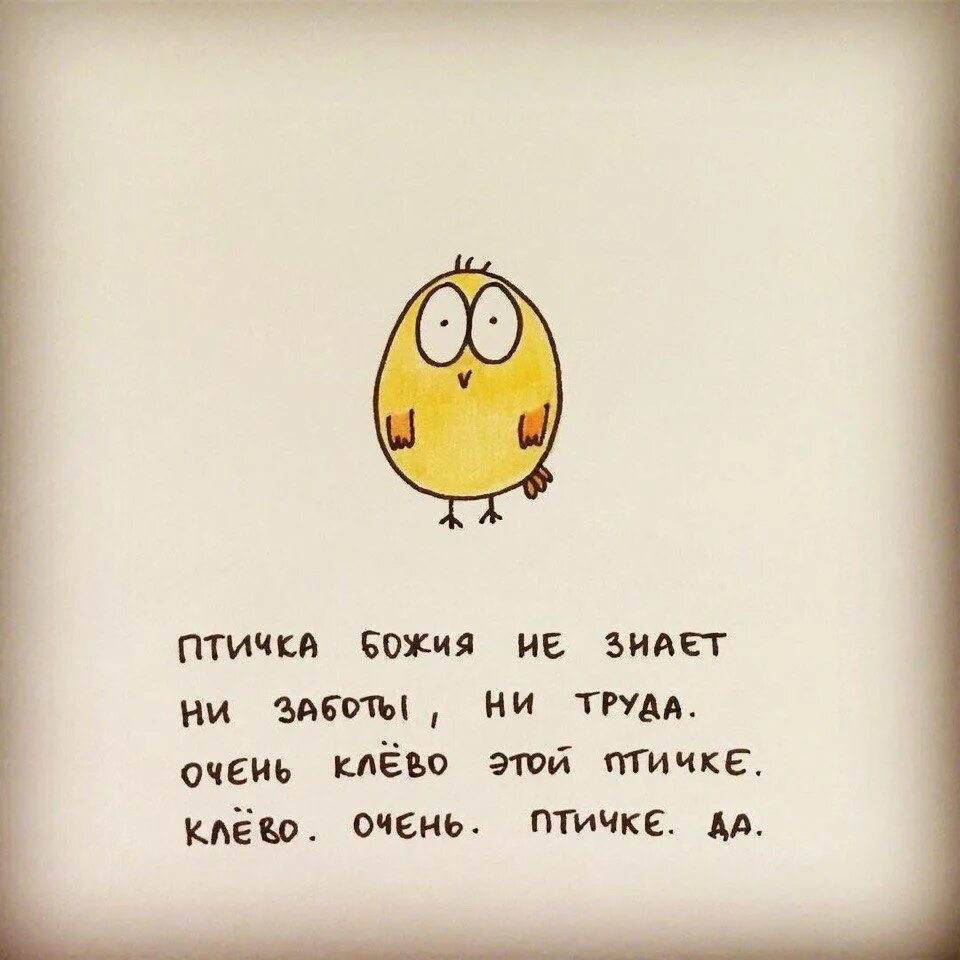 ПТИЧКА БОЖИЯ НЕ ЗНАЕТ
НИ ЗАБОТЫ, НИ ТРУДА.
ОЧЕНЬ КЛЁВО ЭТОЙ ПТИЧКЕ.
КЛЁВО. ОЧЕНЬ. ПТИЧКЕ. ДА.